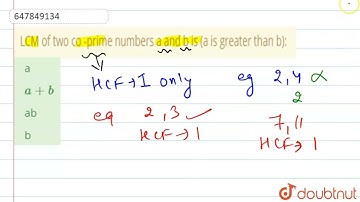 647849134
LCM of two co -prime numbers a and b is (a is greater than b):
a
a + b
ab
b
HCF → 1 only
eg 2, 4 ×
2
eg 2, 3 ✓
HCF → 1
7, 11
HCF → 1
doubtnut